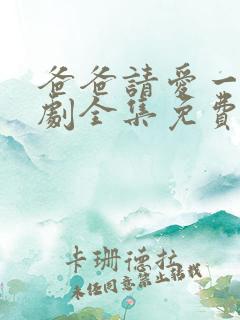 爸爸請愛一
劇全集免費
卡珊德拉
未任同意禁止轉載